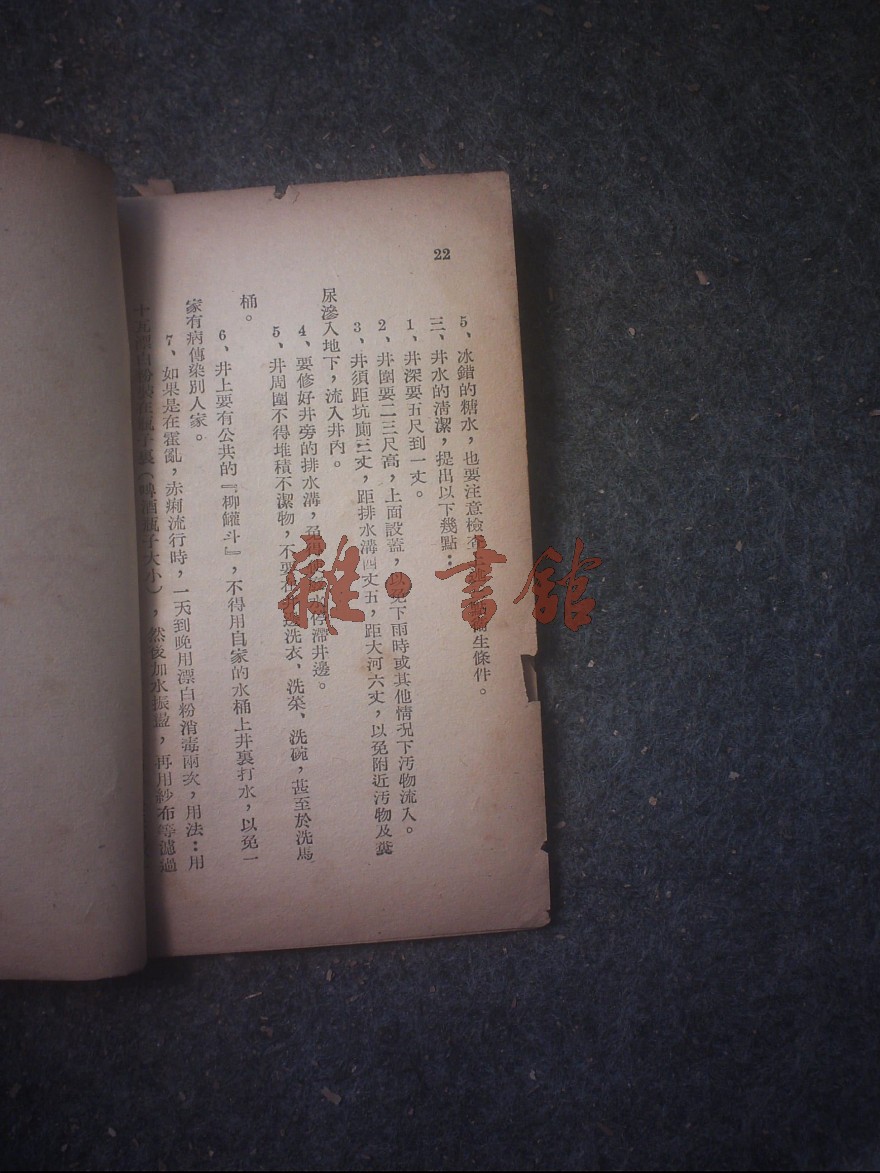 22
5、冰錯的糖水，也要注意檢查 衛生條件。
三、井水的清潔，提出以下幾點：
1、井深要五尺到一丈。
2、井圍要二三尺高，上面設蓋，以免下雨時或其他情況下汚物流入。
3、井須距坑廁三丈，距排水溝四丈五，距大河六丈，以免附近汚物及糞
尿滲入地下，流入井內。
4、要修好井旁的排水溝，免 水停滯井邊。
5、井周圍不得堆積不潔物，不要在 邊洗衣、洗菜、洗碗，甚至於洗馬
桶。
6、井上要有公共的『柳罐斗』，不得用自家的水桶上井裏打水，以免一
家有病傳染別人家。
7、如果是在霍亂，赤痢流行時，一天到晚用漂白粉消毒兩次，用法：用
漂白粉 瓶子裏（啤酒瓶子大小），然後加水振盪，再用紗布等濾過
雜·書館